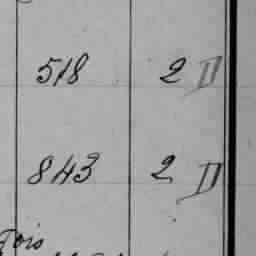 518 2 II
843 2 II
Tois